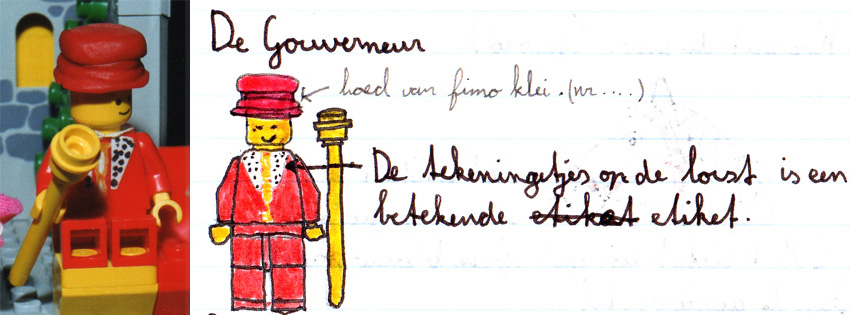 De Gouverneur
hoed van fimo klei. (nr....)
De tekeningetjes op de borst is een
betekende etiket etiket.